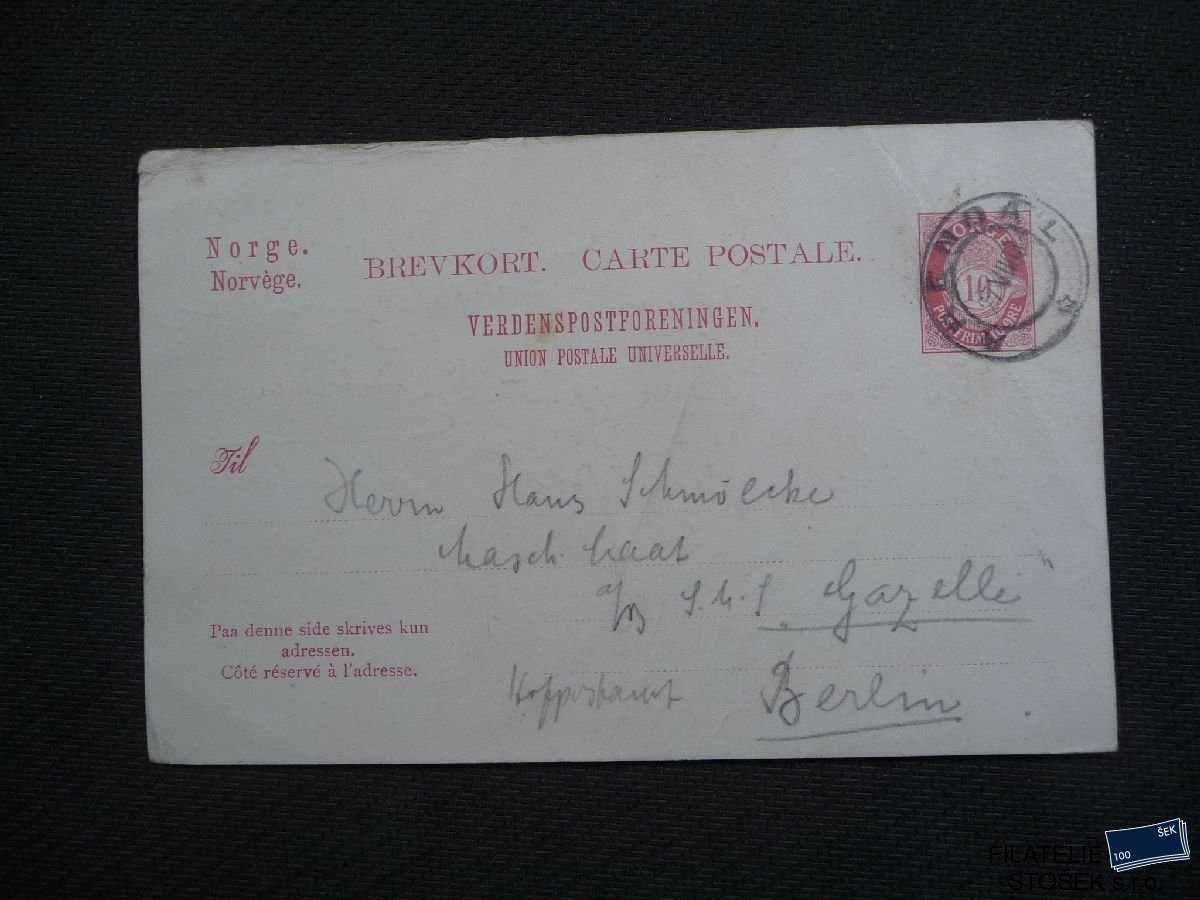 Norge.
Norvège.
BREVKORT. CARTE POSTALE.
VERDENSPOSTFORENINGEN.
UNION POSTALE UNIVERSELLE.
NORGE
10
POSTFRIM. 10 ØRE
Til
Herrn Hans Schmölcke
Masch. Maat
a/B S.M.S. „Gazelle"
Paa denne side skrives kun
adressen.
Côté réservé à l'adresse.
Berlin
100 ŠEK
FILATELIE
STOŠEK s.r.o.